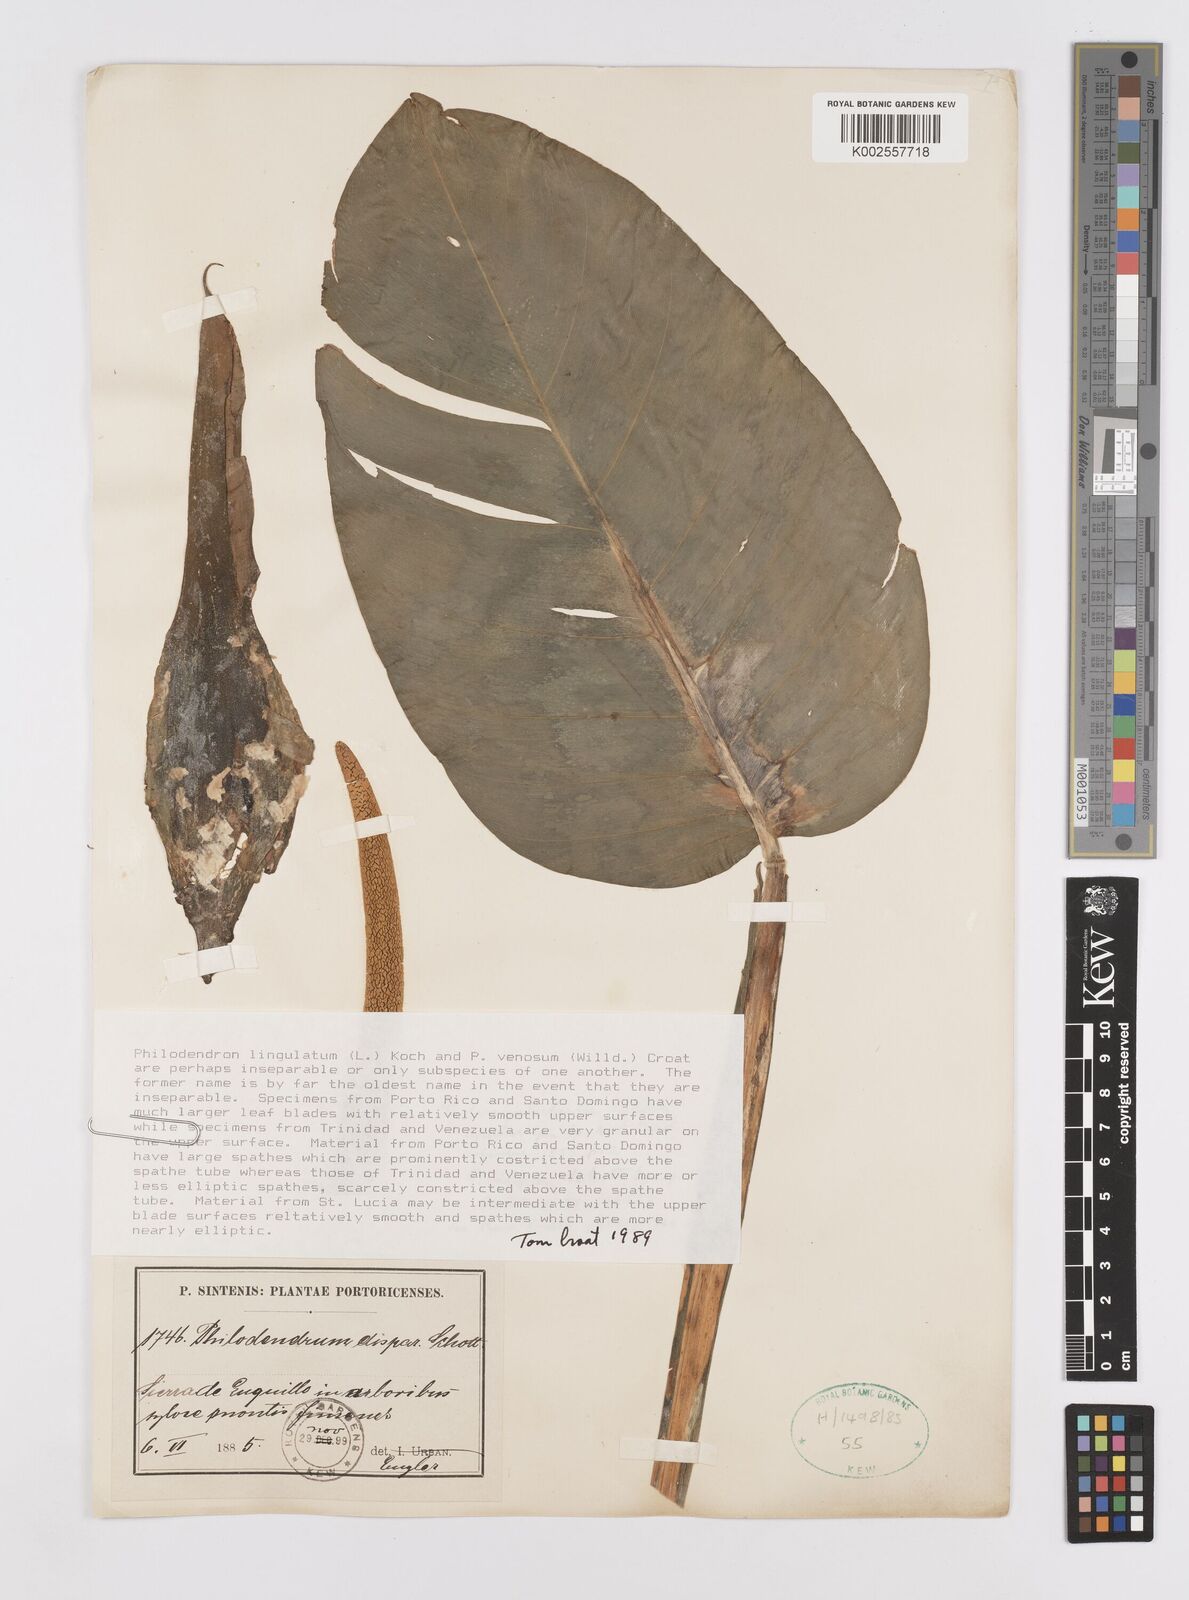 ROYAL BOTANIC GARDENS KEW
K002557718
Philodendron lingulatum (L.) Koch and P. venosum (Willd.) Croat
are perhaps inseparable or only subspecies of one another. The
former name is by far the oldest name in the event that they are
inseparable. Specimens from Porto Rico and Santo Domingo have
much larger leaf blades with relatively smooth upper surfaces
while specimens from Trinidad and Venezuela are very granular on
the upper surface. Material from Porto Rico and Santo Domingo
have large spathes which are prominently costricted above the
spathe tube whereas those of Trinidad and Venezuela have more or
less elliptic spathes, scarcely constricted above the spathe
tube. Material from St. Lucia may be intermediate with the upper
blade surfaces reltatively smooth and spathes which are more
nearly elliptic.
Tom Croat 1989
P. SINTENIS: PLANTAE PORTORICENSES.
1746. Philodendrum dispar Schott.
Sierra de Luquillo in arboribus
montis
6. VI 1885.
det. I. URBAN.
Engler
ROYAL GARDENS
nov
29 DEC.99
KEW
ROYAL BOTANIC GARDENS
H/1498/83
55
KEW
inches
centimetres
Density
Don Williams
M001053
Kew
Royal Botanic Gardens
0 1 2 3 4 5 6 7 8 9 10
copyright reserved